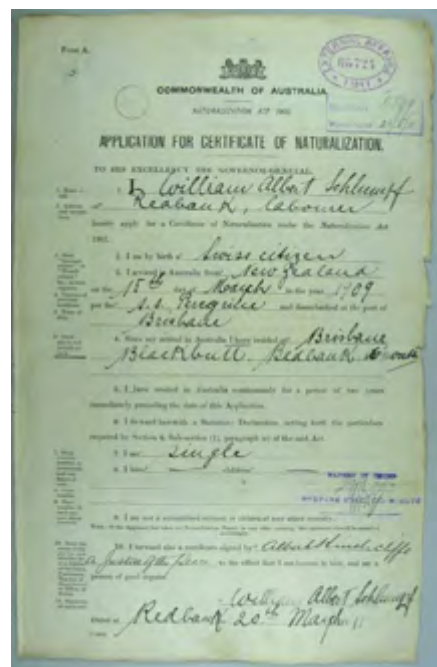 Form A.
EXTERNAL AFFAIRS
1911
COMMONWEALTH OF AUSTRALIA
NATURALIZATION ACT 1903.
APPLICATION FOR CERTIFICATE OF NATURALIZATION.
TO HIS EXCELLENCY THE GOVERNOR-GENERAL.
1. I, William Albert Schlumpf
of Redbank, labourer
hereby apply for a Certificate of Naturalization under the Naturalization Act
1903.
2. I am by birth a Swiss citizen
3. I arrived in Australia from New Zealand
on the 15th day March in the year 1909
per the s.s. Peregrine and disembarked at the port of
Brisbane
4. Since my arrival in Australia I have resided at Brisbane
Blackbutt Redbank
5. I have resided in Australia continuously for a period of two years
immediately preceding the date of this Application.
6. I forward herewith a Statutory Declaration setting forth the particulars
required by Section 6, Sub-section (1), paragraph (a) of the said Act.
7. I am single
8. I have children
9. I am not a naturalized subject or citizen of any other country.
10. I forward also a certificate signed by Albert Hinchcliffe
a Justice of the Peace to the effect that I am known to him, and am a
person of good repute.
William Albert Schlumpf
Dated at Redbank 20th March 11